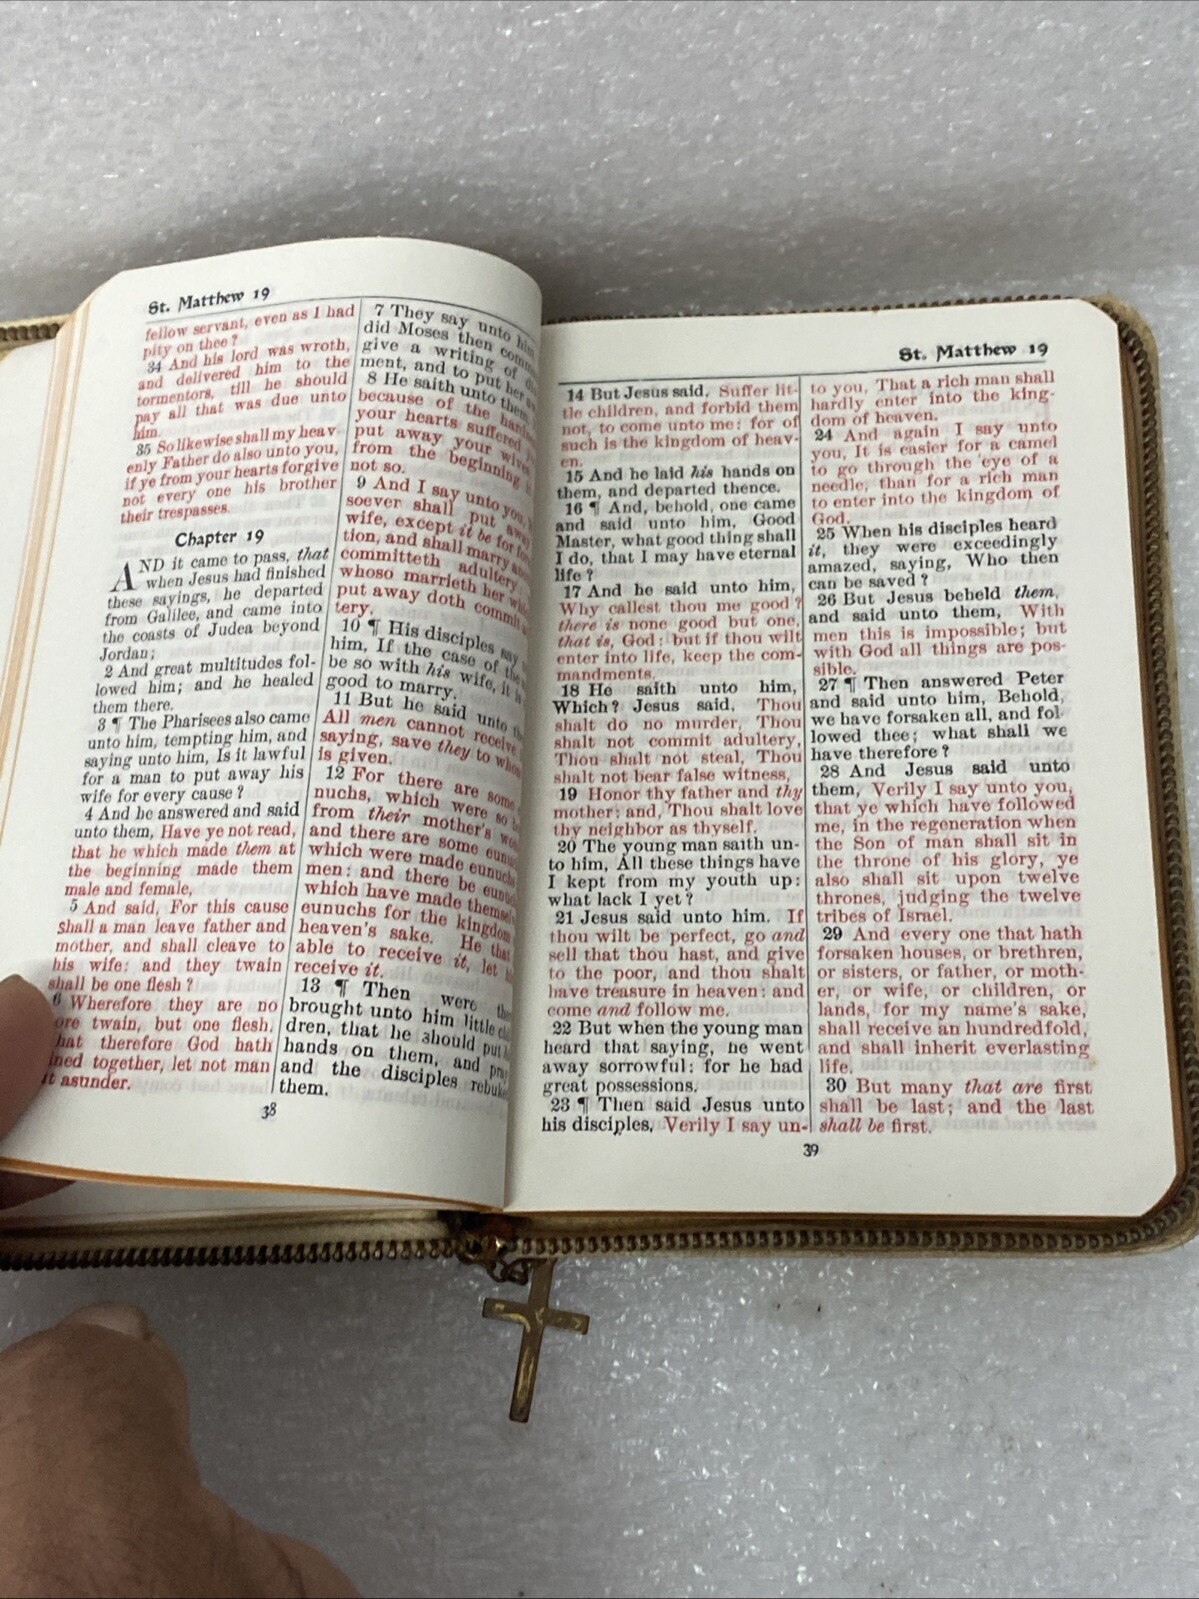 St. Matthew 19
fellow servant, even as I had
pity on thee?
34 And his lord was wroth,
and delivered him to the
tormentors, till he should
pay all that was due unto
him.
35 So likewise shall my heav
enly Father do also unto you,
if ye from your hearts forgive
not every one his brother
their trespasses.
Chapter 19
AND it came to pass, that
when Jesus had finished
these sayings, he departed
from Galilee, and came into
the coasts of Judea beyond
Jordan;
2 And great multitudes fol-
lowed him; and he healed
them there.
3 ¶ The Pharisees also came
unto him, tempting him, and
saying unto him, Is it lawful
for a man to put away his
wife for every cause?
4 And he answered and said
unto them, Have ye not read,
that he which made them at
the beginning made them
male and female,
5 And said, For this cause
shall a man leave father and
mother, and shall cleave to
his wife: and they twain
shall be one flesh?
6 Wherefore they are no
ore twain, but one flesh.
hat therefore God hath
ined together, let not man
t asunder.
38
7 They say unto him
did Moses then com
give a writing of
ment, and to put her
8 He saith unto them
because of the
your hearts suffered
put away your wives
from the beginning
not so.
9 And I say unto you,
soever shall put away
wife, except it be for
tion, and shall marry
committeth adultery:
whoso marrieth her
put away doth commit
tery.
10 ¶ His disciples say
him, If the case of the
be so with his wife, it is
good to marry.
11 But he said unto
All men cannot receive
saying, save they to whom
is given.
12 For there are some
nuchs, which were so
from their mother's
and there are some
which were made eunuchs
men: and there be eunuchs
which have made themsel
eunuchs for the kingdom
heaven's sake. He that
able to receive it, let
receive it.
13 ¶ Then were
brought unto him little
dren, that he should put
hands on them, and pray
and the disciples rebuke
them.
St. Matthew 19
14 But Jesus said, Suffer lit-
tle children, and forbid them
not, to come unto me: for of
such is the kingdom of heav-
en.
15 And he laid his hands on
them, and departed thence.
16 ¶ And, behold, one came
and said unto him, Good
Master, what good thing shall
I do, that I may have eternal
life?
17 And he said unto him,
Why callest thou me good?
there is none good but one,
that is, God: but if thou wilt
enter into life, keep the com-
mandments.
18 He saith unto him,
Which? Jesus said, Thou
shalt do no murder, Thou
shalt not commit adultery,
Thou shalt not steal, Thou
shalt not bear false witness,
19 Honor thy father and thy
mother: and, Thou shalt love
thy neighbor as thyself.
20 The young man saith un-
to him, All these things have
I kept from my youth up:
what lack I yet?
21 Jesus said unto him. If
thou wilt be perfect, go and
sell that thou hast, and give
to the poor, and thou shalt
have treasure in heaven: and
come and follow me.
22 But when the young man
heard that saying, he went
away sorrowful: for he had
great possessions.
23 ¶ Then said Jesus unto
his disciples, Verily I say un-
to you, That a rich man shall
hardly enter into the king-
dom of heaven.
24 And again I say unto
you, It is easier for a camel
to go through the eye of a
needle, than for a rich man
to enter into the kingdom of
God.
25 When his disciples heard
it, they were exceedingly
amazed, saying, Who then
can be saved?
26 But Jesus beheld them,
and said unto them, With
men this is impossible; but
with God all things are pos-
sible.
27 ¶ Then answered Peter
and said unto him, Behold,
we have forsaken all, and fol-
lowed thee; what shall we
have therefore?
28 And Jesus said unto
them, Verily I say unto you,
that ye which have followed
me, in the regeneration when
the Son of man shall sit in
the throne of his glory, ye
also shall sit upon twelve
thrones, judging the twelve
tribes of Israel.
29 And every one that hath
forsaken houses, or brethren,
or sisters, or father, or moth-
er, or wife, or children, or
lands, for my name's sake,
shall receive an hundredfold,
and shall inherit everlasting
life.
30 But many that are first
shall be last; and the last
shall be first.
39